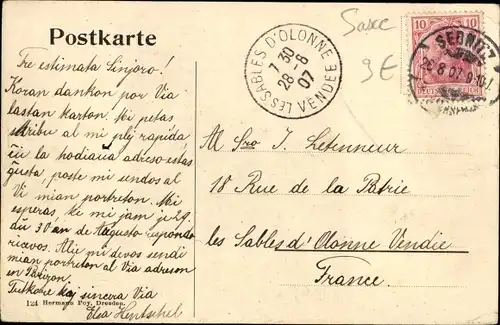 Postkarte
Tre estimata Sinjoro!
Koran dankon por Via
lastan karton. Mi petas
skribu al mi plej rapida
ĉu la hodiaŭa adreso estas
ĝusta poste mi sendos al
Vi mian portreton. Mi
esperas, ke mi jam je 29.
aŭ 30 an de Aŭgusto respondo
ricevos. Alie mi devos sendi
mian portreton al Via adreson
en Parizon.
Tutkore kaj sincera Via
Elsa Hentschel
124 Hermann Poy, Dresden.
LES SABLES D'OLONNE VENDEE
7 30
28 - 8
07
Saxe
9E
10 10
DEUTSCHES REICH
SEBNITZ
26 8 07 9-10
M Sro J. Letenneur
18 Rue de la Patrie
les Sables d'Olonne Vendie
France.